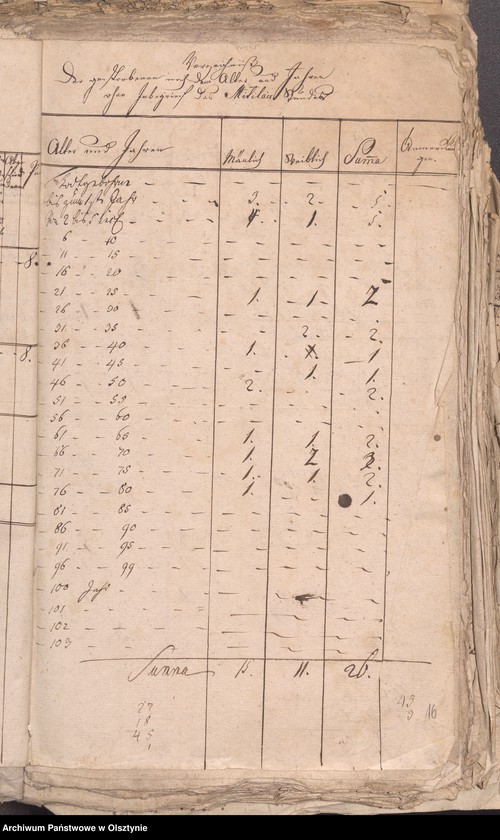 Verzeichniß
Der gestorbenen nach dem Alter und Jahren
ohne Inbegrief des Militair Standes
Alter und Jahren Mänlich Weiblich Suma Anmerkungen.
Todtgebohrne - - - -
bis zum 1te Jahr 3. 2. 5.
von 2 bis 5 incl 4 1. 5.
6 10 - - - -
11 15 - - - -
16 20 - - - -
21 25 1. 1 2
26 30 - - - -
31 35 - 2. 2.
36 40 1. - 1
41 45 - 1. 1.
46 50 2. - 2.
51 55 - - - -
56 60 - - - -
61 65 1. 1. 2.
66 70 1. 2 3.
71 75 1. 1. 2.
76 80 1. - 1.
81 85 - - - -
86 90 - - - -
91 95 - - - -
96 99 - - - -
100 Jahr - - -
101 - - - -
102 - - - -
103 - - - -
Summa 15. 11. 26.
27
18
45
1
43
3 16
8.
8.
Archiwum Państwowe w Olsztynie